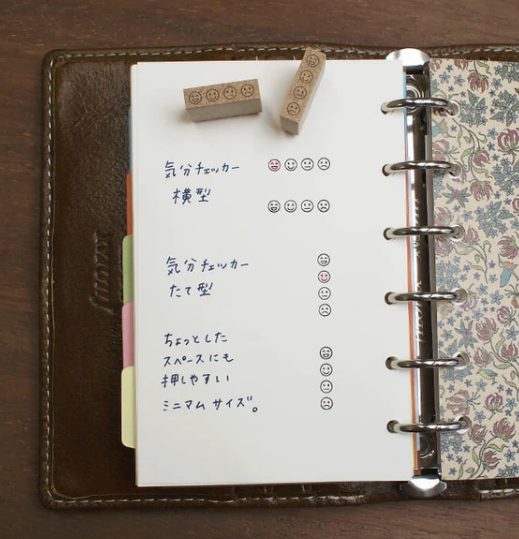 気分チェッカー
横型
気分チェッカー
たて型
ちょっとした
スペースにも
押しやすい
ミニマムサイズ。